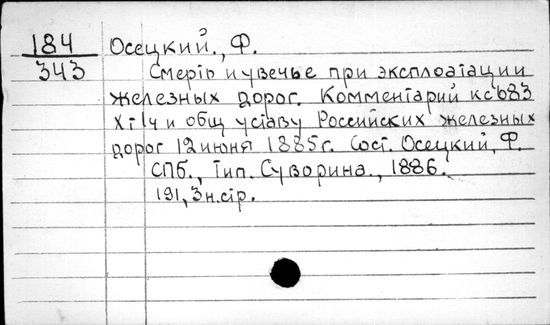 184
343
Осецкий., Ф.
Смерть и увечье при эксплоатации
железных дорог. Комментарий к с 683
X т 1 ч и общ уставу Российских железных
дорог 12 июня 1885 г. Сост. Осецкий, Ф.
СПб., Тип. Суворина., 1886.
191, 3 н.стр.